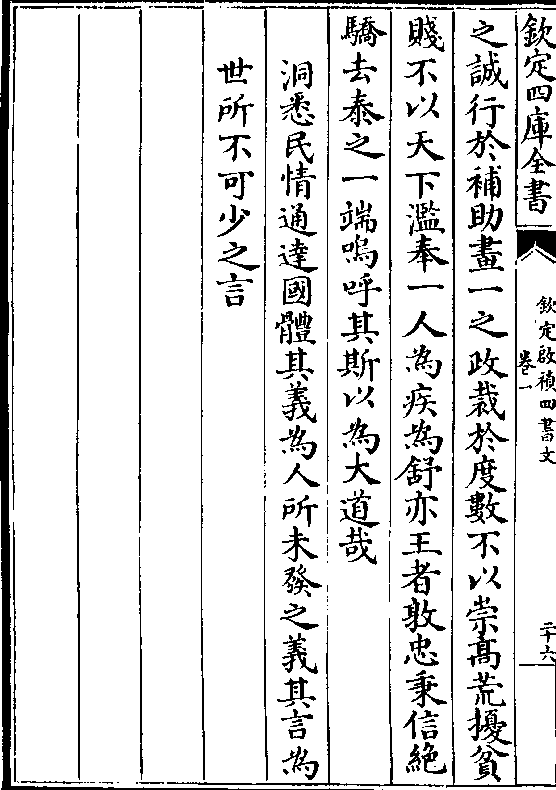 欽定四庫全書
欽定啟禎四書文
卷一
二十六
之誠行於補助畫一之政裁於度數不以崇髙荒擾貧
賤不以天下濫奉一人為疾為舒亦王者敦忠秉信絶
驕去泰之一端嗚呼其斯以為大道哉
洞悉民情通達國體其義為人所未發之義其言為
世所不可少之言